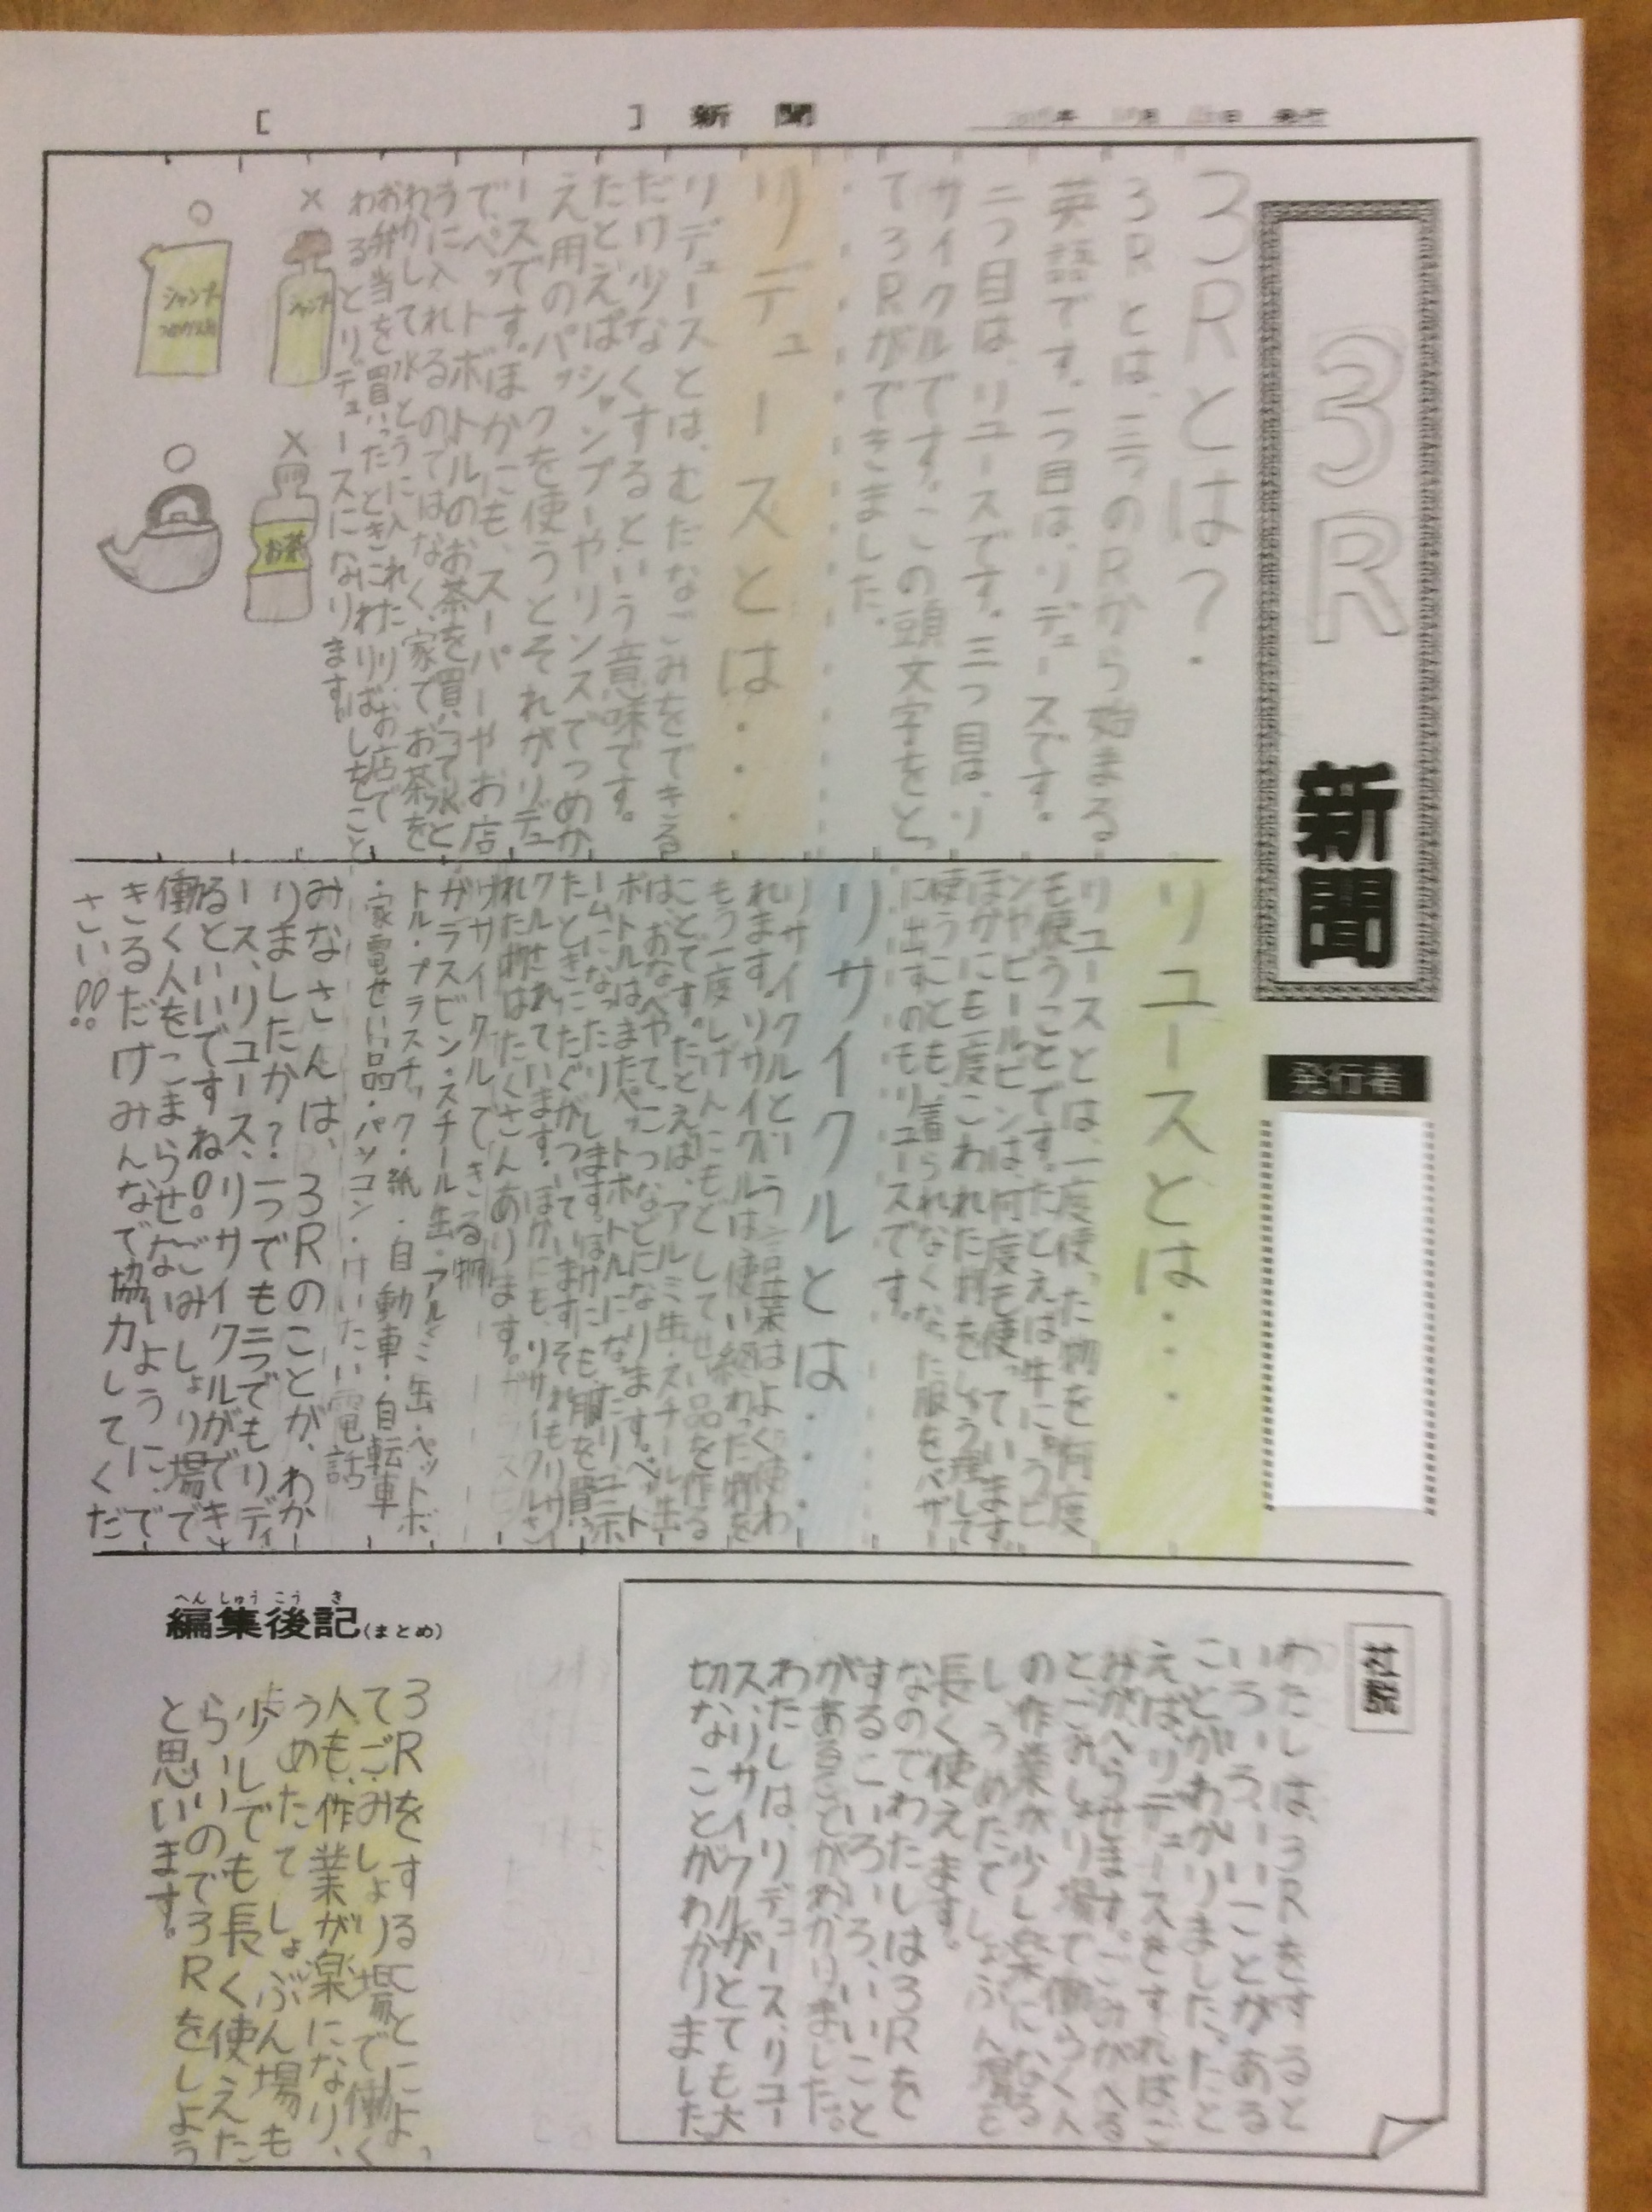 [ ] 新聞
年 月 日 発行
3R
新聞
発行者
3Rとは?
3Rとは、三つのRから始まる
英語です。一つ目は、リデュースです。
二つ目は、リユースです。三つ目は、リ
サイクルです。この頭文字をとっ
て3Rができました。
リデュースとは・・・
リデュースとは、むだなごみをできる
だけ少なくするという意味です。
たとえばシャンプーやリンスでつめか
え用のパックを使うとそれがリデュ
ースです。ほかにも、スーパーやお店
で、ペットボトルのお茶を買って水と
うに入れるのではなく、家でお茶を
わかして水とうに入れたり、お店で
お弁当を買ったときにわりばしをこと
わるとリデュースになります。
×
シャンプー
○
シャンプー
×
お茶
○
リユースとは・・・
リユースとは、一度使った物を何度
も使うことです。たとえば牛にゅうビ
ンやビールビンは、何度も使っています。
ほかにも一度こわれた物をしゅう理して
使うことも、着られなくなった服をバザー
に出すのもリユースです。
リサイクルとは・・・
リサイクルという言葉はよく使わ
れます。リサイクルは使い終わった物を
もう一度しげんにもどしてせい品を作る
ことです。たとえば、アルミ缶・スチール缶
は、おなべやてっこつなどになります。ペット
ボトルはまたペットボトルになったり、
たときにたぐがついています。それもリサイ
クルされています。ほかにも、リサイクルさ
れた物はたくさんあります。
リサイクルできる物
ガラスビン・スチール缶・アルミ缶・ペットボ
トル・プラスチック・紙・自動車・自転車
・家電せい品・パソコン・けいたい電話
みなさんは、3Rのことが、わか
りましたか?一つでも二つでもリデュ
ース、リユース、リサイクルができ
るといいですね。ごみしょり場で
働く人をこまらせないように、で
きるだけみんなで協力してくだ
さい!!
社説
わたしは、3Rをすると
いろいろ、いいことがある
ことがわかりました。たと
えば、リデュースをすればご
みが、へらせます。ごみがへる
と、ごみしょり場で働く人
の作業が少し楽になる
し、うめたてしょぶん場も
長く使えます。
なのでわたしは3Rを
するといろいろ、いいこと
があることがわかりました。
わたしは、リデュース、リユー
ス、リサイクルがとても大
切なことがわかりました
編集後記(まとめ)
へんしゅうこうき
3Rをすることによっ
てごみしょり場で働く
人も、作業が楽になり、
うめたてしょぶん場も
少しでも長く使えた
らいいので3Rをしよう
と思います。